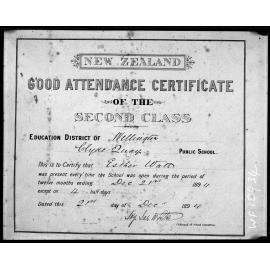 NEW ZEALAND
GOOD ATTENDANCE CERTIFICATE
OF THE
SECOND CLASS
EDUCATION DISTRICT OF Wellington
Clyde Quay PUBLIC SCHOOL.
This is to Certify that Esther Watt
was present every time the School was open during the period of
twelve months ending Dec 21st 1894
except on 4 half days
Dated this 21st day of Dec 1894